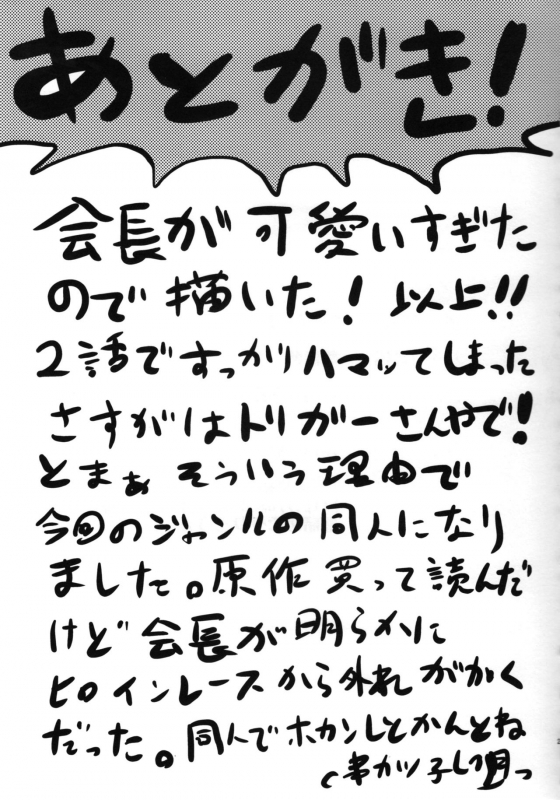 あとがき!
会長が可愛いすぎた
ので描いた!以上!!
2話ですっかりハマッてしまった
さすがはトリガーさんやで!
とまぁそういう理由で
今回のジャンルの同人になり
ました。原作買って読んだ
けど会長が明らかに
ヒロインレースから外れがかく
だった。同人でホカンしとかんとね
串カツ子